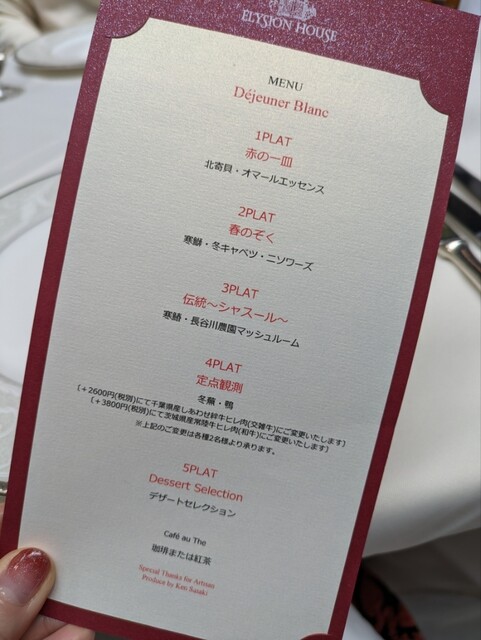 ELYSION HOUSE
MENU
Déjeuner Blanc
1PLAT
赤の一皿
北寄貝・オマールエッセンス
2PLAT
春のぞく
寒鰤・冬キャベツ・ニソワーズ
3PLAT
伝統～シャスール～
寒鰆・長谷川農園マッシュルーム
4PLAT
定点観測
冬蕪・鴨
(＋2600円(税別)にて千葉県産しあわせ絆牛ヒレ肉(交雑牛)にご変更いたします)
(＋3800円(税別)にて茨城県産常陸牛ヒレ肉(和牛)にご変更いたします)
※上記のご変更は各種2名様より承ります。
5PLAT
Dessert Selection
デザートセレクション
Café au The
珈琲または紅茶
Special Thanks for Artisan
Produce by Ken Sasaki